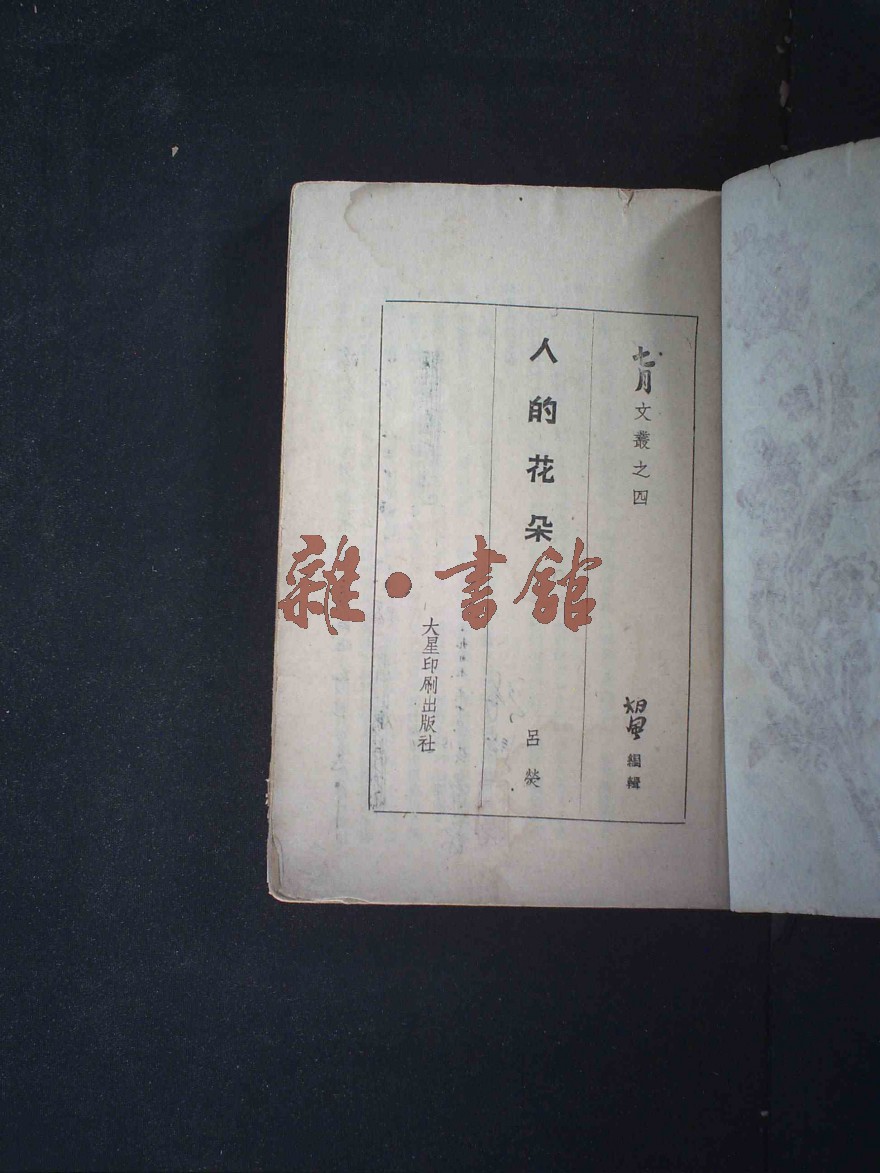 七月文叢之四
胡風 編輯
人的花朵
呂熒
大星印刷出版社
雜·書館